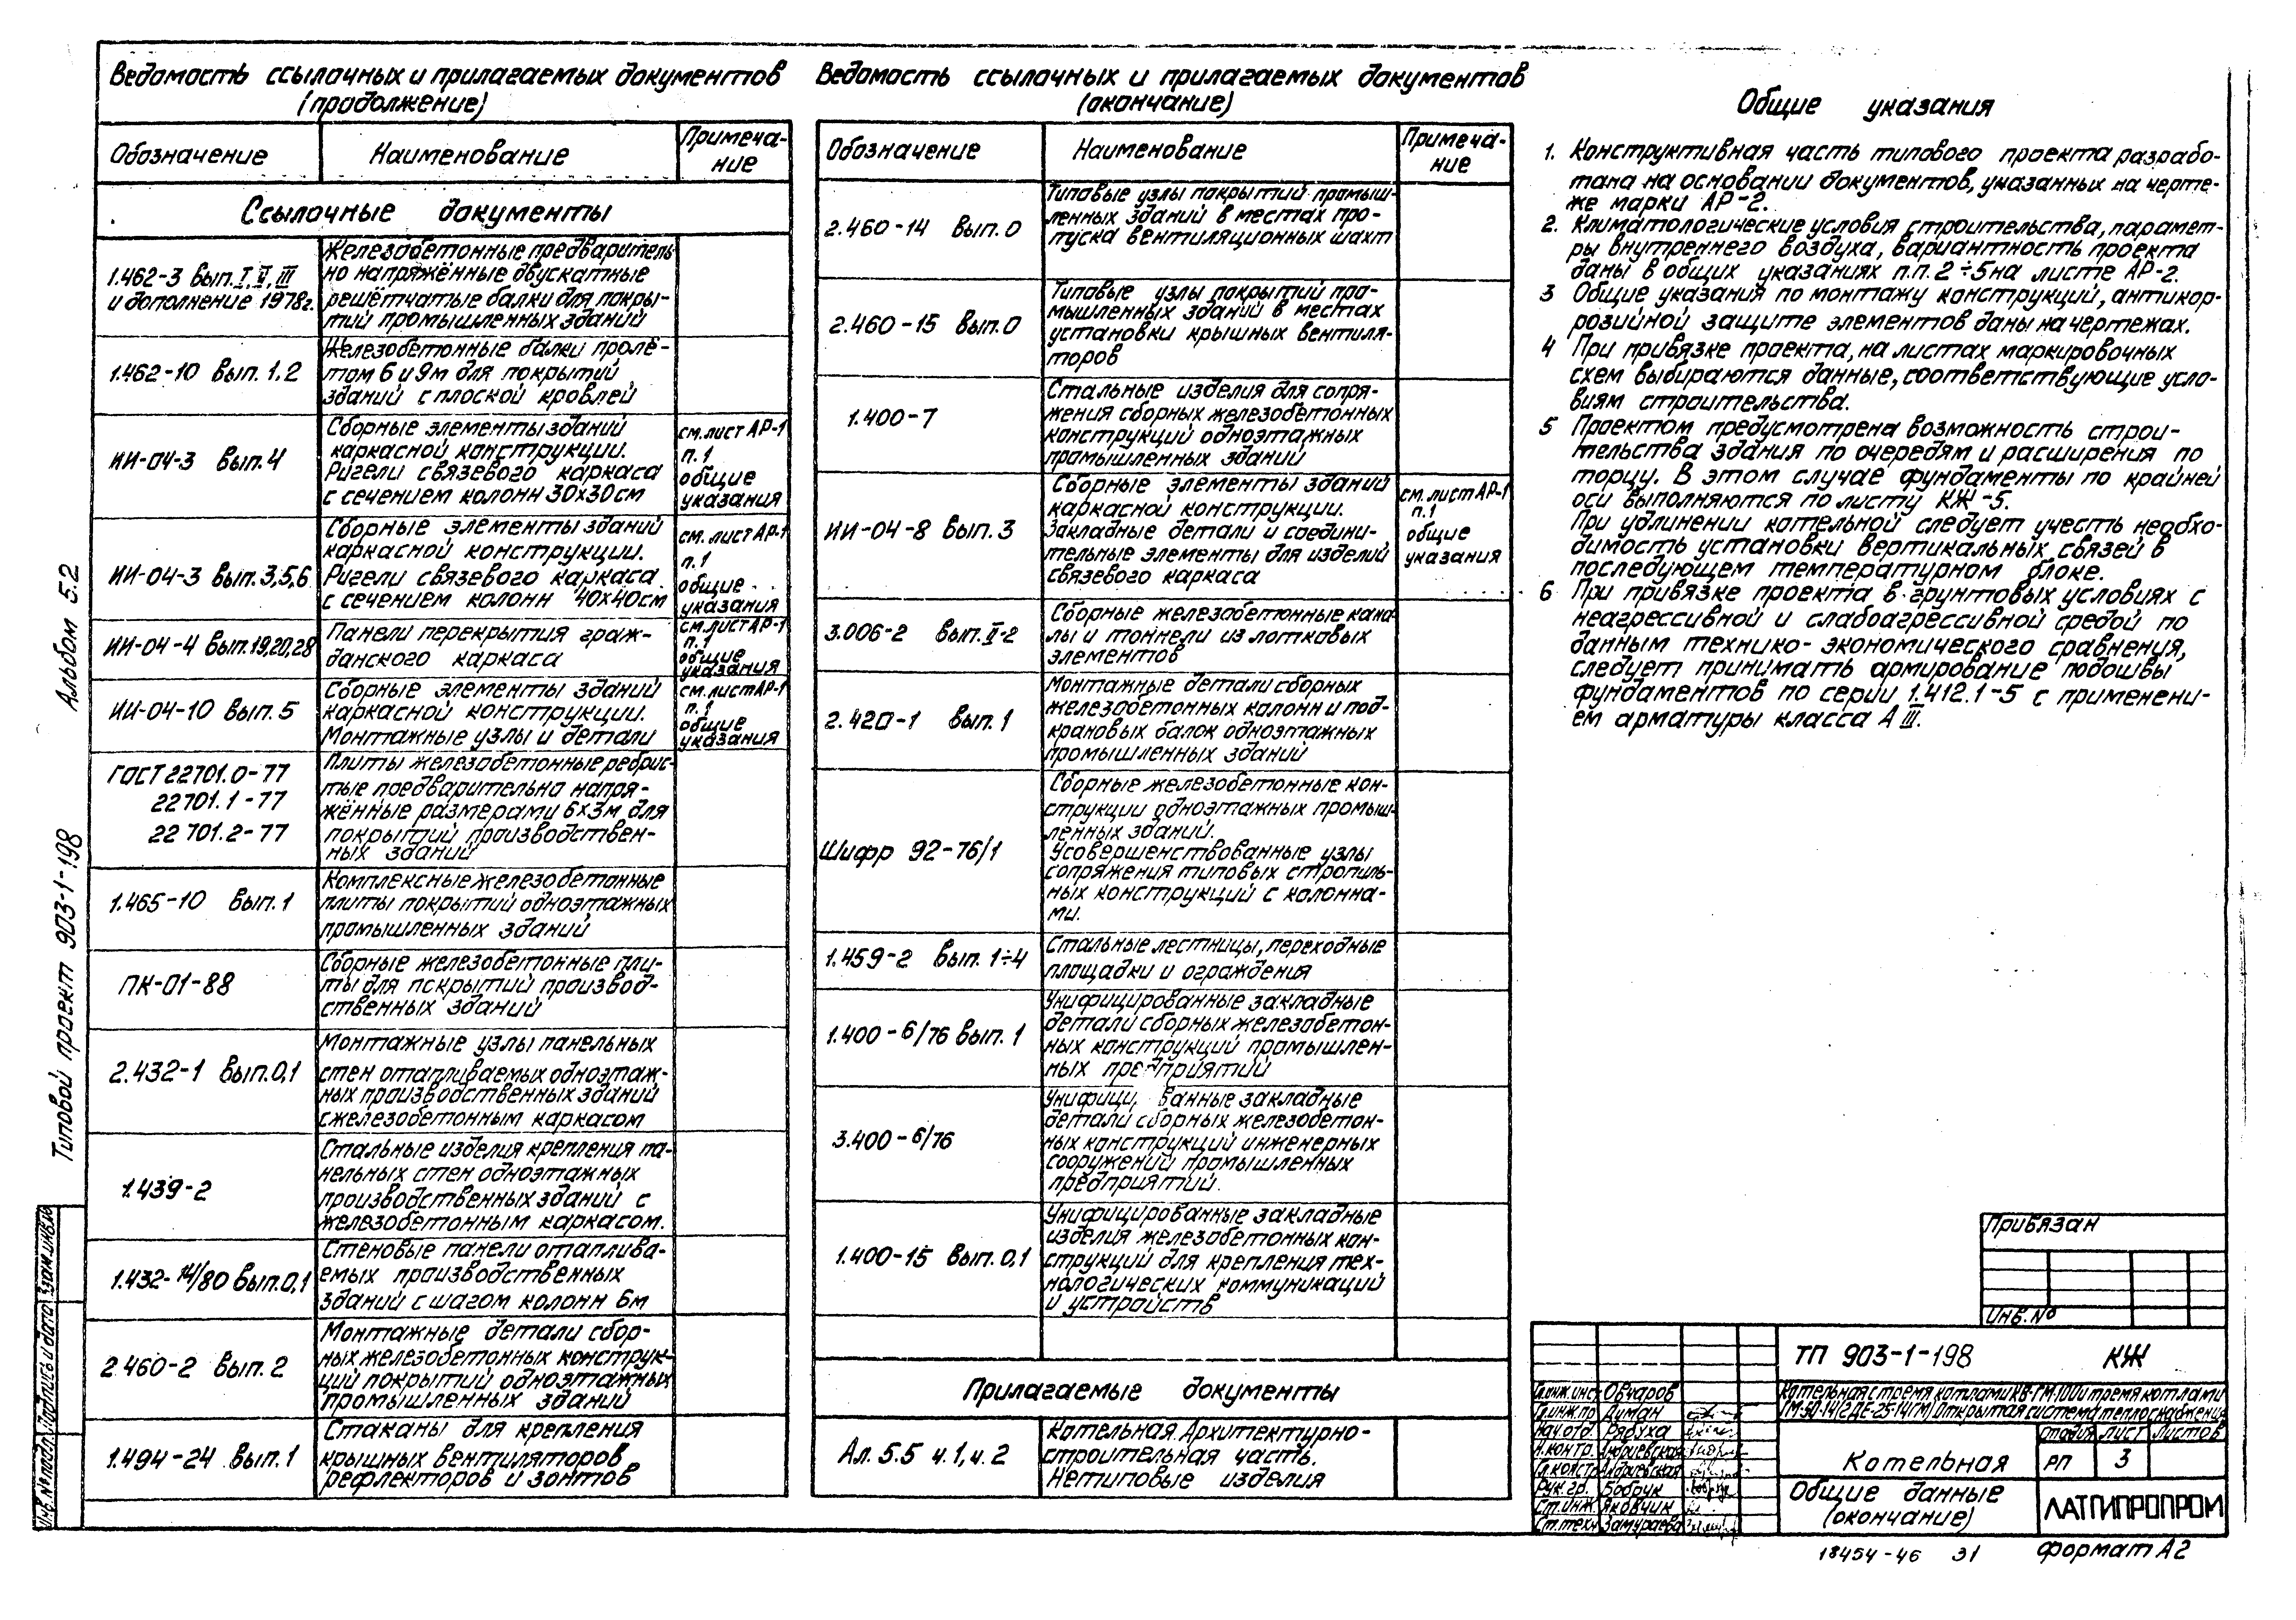 Ведомость ссылочных и прилагаемых документов
(продолжение)
Обозначение Наименование Примеча-
ние
Ссылочные документы
1.462-3 вып. I, II, III
и дополнение 1978г.
Железобетонные предваритель-
но напряжённые двускатные
решётчатые балки для покры-
тий промышленных зданий
1.462-10 вып. 1,2
Железобетонные балки пролё-
том 6 и 9м для покрытий
зданий с плоской кровлей
ИИ-04-3 вып. 4
Сборные элементы зданий
каркасной конструкции.
Ригели связевого каркаса
с сечением колонн 30х30см
см. лист АР-1
п.1
общие
указания
ИИ-04-3 вып. 3,5,6
Сборные элементы зданий
каркасной конструкции.
Ригели связевого каркаса
с сечением колонн 40х40см
см. лист АР-1
п.1
общие
указания
ИИ-04-4 вып. 19,20,28
Панели перекрытия граж-
данского каркаса
см. лист АР-1
п.1
общие
указания
ИИ-04-10 вып. 5
Сборные элементы зданий
каркасной конструкции.
Монтажные узлы и детали
см. лист АР-1
п.1
общие
указания
ГОСТ 22701.0-77
22701.1-77
22701.2-77
Плиты железобетонные ребрис-
тые предварительно напря-
жённые размерами 6х3м для
покрытий производствен-
ных зданий
1.465-10 вып. 1
Комплексные железобетонные
плиты покрытий одноэтажных
промышленных зданий
ПК-01-88
Сборные железобетонные пли-
ты для покрытий производ-
ственных зданий
2.432-1 вып. 0,1
Монтажные узлы панельных
стен отапливаемых одноэтаж-
ных производственных зданий
с железобетонным каркасом
1.439-2
Стальные изделия крепления па-
нельных стен одноэтажных
производственных зданий с
железобетонным каркасом.
1.432-14/80 вып. 0,1
Стеновые панели отаплива-
емых производственных
зданий с шагом колонн 6м
2.460-2 вып. 2
Монтажные детали сбор-
ных железобетонных конструк-
ций покрытий одноэтажных
промышленных зданий
1.494-24 вып. 1
Стаканы для крепления
крышных вентиляторов
рефлекторов и зонтов
Ведомость ссылочных и прилагаемых документов
(окончание)
Обозначение Наименование Примеча-
ние
2.460-14 вып. 0
Типовые узлы покрытий промыш-
ленных зданий в местах про-
пуска вентиляционных шахт
2.460-15 вып. 0
Типовые узлы покрытий про-
мышленных зданий в местах
установки крышных вентиля-
торов
1.400-7
Стальные изделия для сопря-
жения сборных железобетонных
конструкций одноэтажных
промышленных зданий
ИИ-04-8 вып. 3
Сборные элементы зданий
каркасной конструкции.
Закладные детали и соедини-
тельные элементы для изделий
связевого каркаса
см. лист АР-1
п.1
общие
указания
3.006-2 вып. II-2
Сборные железобетонные кана-
лы и тоннели из лотковых
элементов
2.420-1 вып. 1
Монтажные детали сборных
железобетонных колонн и под-
крановых балок одноэтажных
промышленных зданий
Шифр 92-76/1
Сборные железобетонные кон-
струкции одноэтажных промыш-
ленных зданий.
Усовершенствованные узлы
сопряжения типовых стропиль-
ных конструкций с колонна-
ми.
1.459-2 вып. 1÷4
Стальные лестницы, переходные
площадки и ограждения
1.400-6/76 вып. 1
Унифицированные закладные
детали сборных железобетон-
ных конструкций промышлен-
ных предприятий
3.400-6/76
Унифици ванные закладные
детали сборных железобетон-
ных конструкций инженерных
сооружений промышленных
предприятий.
1.400-15 вып. 0,1
Унифицированные закладные
изделия железобетонных кон-
струкций для крепления тех-
нологических коммуникаций
и устройств
Прилагаемые документы
Ал. 5.5 ч.1, ч.2
Котельная. Архитектурно-
строительная часть.
Нетиповые изделия
Общие указания
1. Конструктивная часть типового проекта разрабо-
тана на основании документов, указанных на черте-
же марки АР-2.
2. Климатологические условия строительства, парамет-
ры внутреннего воздуха, вариантность проекта
даны в общих указаниях п.п. 2÷5 на листе АР-2.
3 Общие указания по монтажу конструкций, антикор-
розийной защите элементов даны на чертежах.
4 При привязке проекта, на листах маркировочных
схем выбираются данные, соответствующие усло-
виям строительства.
5 Проектом предусмотрена возможность строи-
тельства здания по очередям и расширения по
торцу. В этом случае фундаменты по крайней
оси выполняются по листу КЖ-5.
При удлинении котельной следует учесть необхо-
димость установки вертикальных связей в
последующем температурном блоке.
6 При привязке проекта в грунтовых условиях с
неагрессивной и слабоагрессивной средой по
данным технико-экономического сравнения,
следует принимать армирование подошвы
фундаментов по серии 1.412.1-5 с применени-
ем арматуры класса А III.
Альбом 5.2
Типовой проект 903-1-198
Взам.инв.№
Подпись и дата
Инв.№ подл.
Привязан
Инв.№
ТП 903-1-198 КЖ
Котельная с тремя котлами КВ-ГМ-100 и тремя котлами
ГМ-50-14/(2ДЕ-25-14ГМ) Открытая система теплоснабжения
Гл.инж.инс. Овчаров
Гл.инж.пр Думан
Нач.отд. Рябуха
Н.контр. Андриевская
Гл.констр Андриевская
Рук.гр. Бобрук
Ст.инж. Яковчик
Ст.техн Замураева
Стадия Лист Листов
Котельная РП 3
Общие данные
(окончание)
ЛАТГИПРОПРОМ
18454-46 31 формат А2